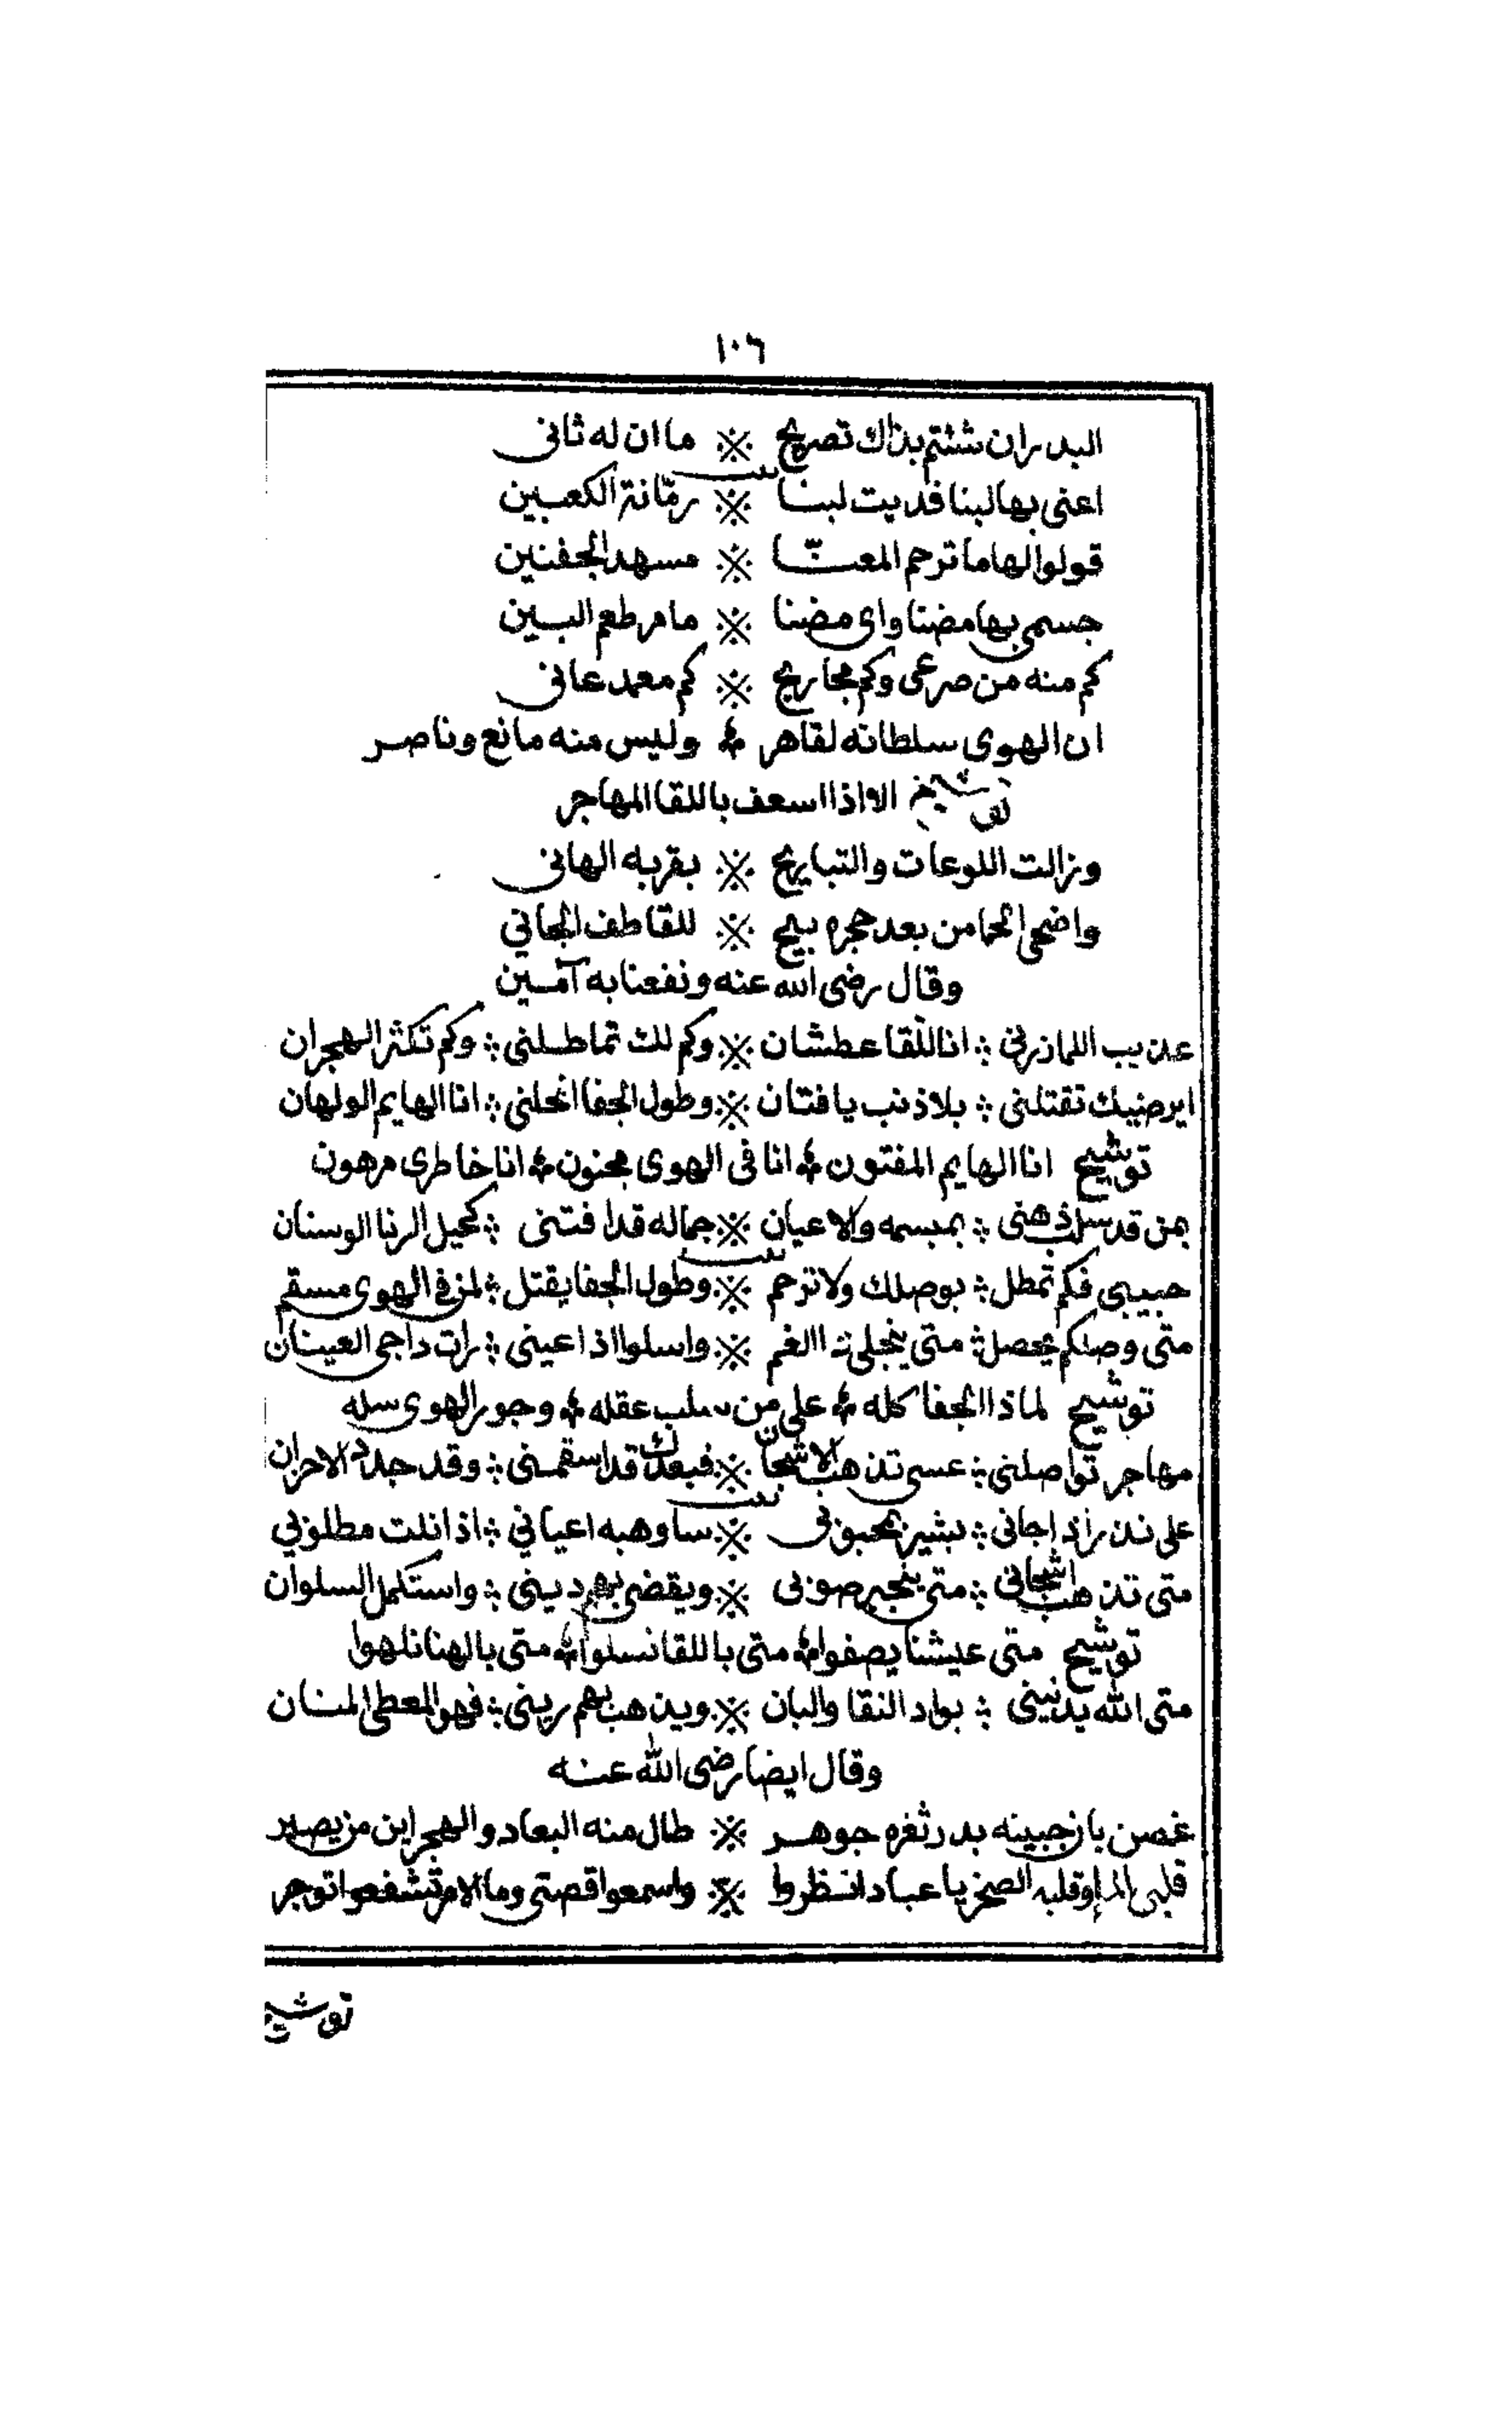 ١٠٦
البدر ان شئتم بذاك تصريح ※ ما ان له ثانى
بيت
اعنى بها لبنا فديت لبنا ※ رمّانة الكعبين
قولوا لها ما ترحم المعنّا ※ مسهد الجفنين
جسمى بها مضنا واى مضنا ※ ما مر طعم البين
كم منه من صرعى وكم مجاريح ※ كم معمد عانى
ان الهوى سلطانه لقاهر ؞ وليس منه مانع وناصر
توشيح الا اذا اسعف باللقا المهاجر
وزالت اللوعات والتباريح ※ بقربه الهانى
واضحى الحما من بعد حجره بيح ※ للقاطف الجاني
وقال رضى الله عنه ونفعنا به آمين
عذيب اللما زرني ؞ انا للقا عطشان ※ وكم لك تماطلنى ؞ وكم تكثر الهجران
ايرضيك تقتلنى ؞ بلا ذنب يا فتان ※ وطول الجفا انحلنى ؞ انا الهايم الولهان
توشيح انا الهايم المفتون ؞ انا فى الهوى مجنون ؞ انا خاطرى مرهون
بمن قد سلب ذهنى ؞ بمبسمه والاعيان ※ جماله قد افتنى ؞ كحيل الرنا الوسنان
بيت
حبيبى فكم تمطل ؞ بوصلك ولا ترحم ※ وطول الجفا يقتل ؞ لمن في الهوى مسقم
متى وصلكم يحصل ؞ متى ينجلى ذا الغم ※ واسلوا اذ اعينى ؞ رات داجى العينان
توشيح لماذا الجفا كله ؞ على من سلب عقله ؞ وجور الهوى سله
مهاجر تواصلنى ؞ عسى تذهب الاشجان ※ فبعدك قد اسقمنى ؞ وقد جدد الاحزان
بيت
على ندن راد اجانى ؞ بشير بمحبوبى ※ ساوهبه اعياني ؞ اذا نلت مطلوبي
متى تذهب اشجاني ؞ متى ينجبر صوبى ※ ويقضى بهم دينى ؞ واستكمل السلوان
توشيح متى عيشنا يصفوا ؞ متى باللقا نسلوا ؞ متى بالهنا نلهوا
متى الله يدنينى ؞ بواد النقا والبان ※ ويذهب بهم رينى ؞ فهو المعطى المنان
وقال ايضا رضى الله عنه
غصن بان جبينه بدر ثغره جوهر ※ طال منه البعاد والهجر اين من يصبر
قلبى الما وقلبه الصخر يا عباد انظروا ※ واسمعوا قصتى وما الامر تشفعوا توجر
توشيح